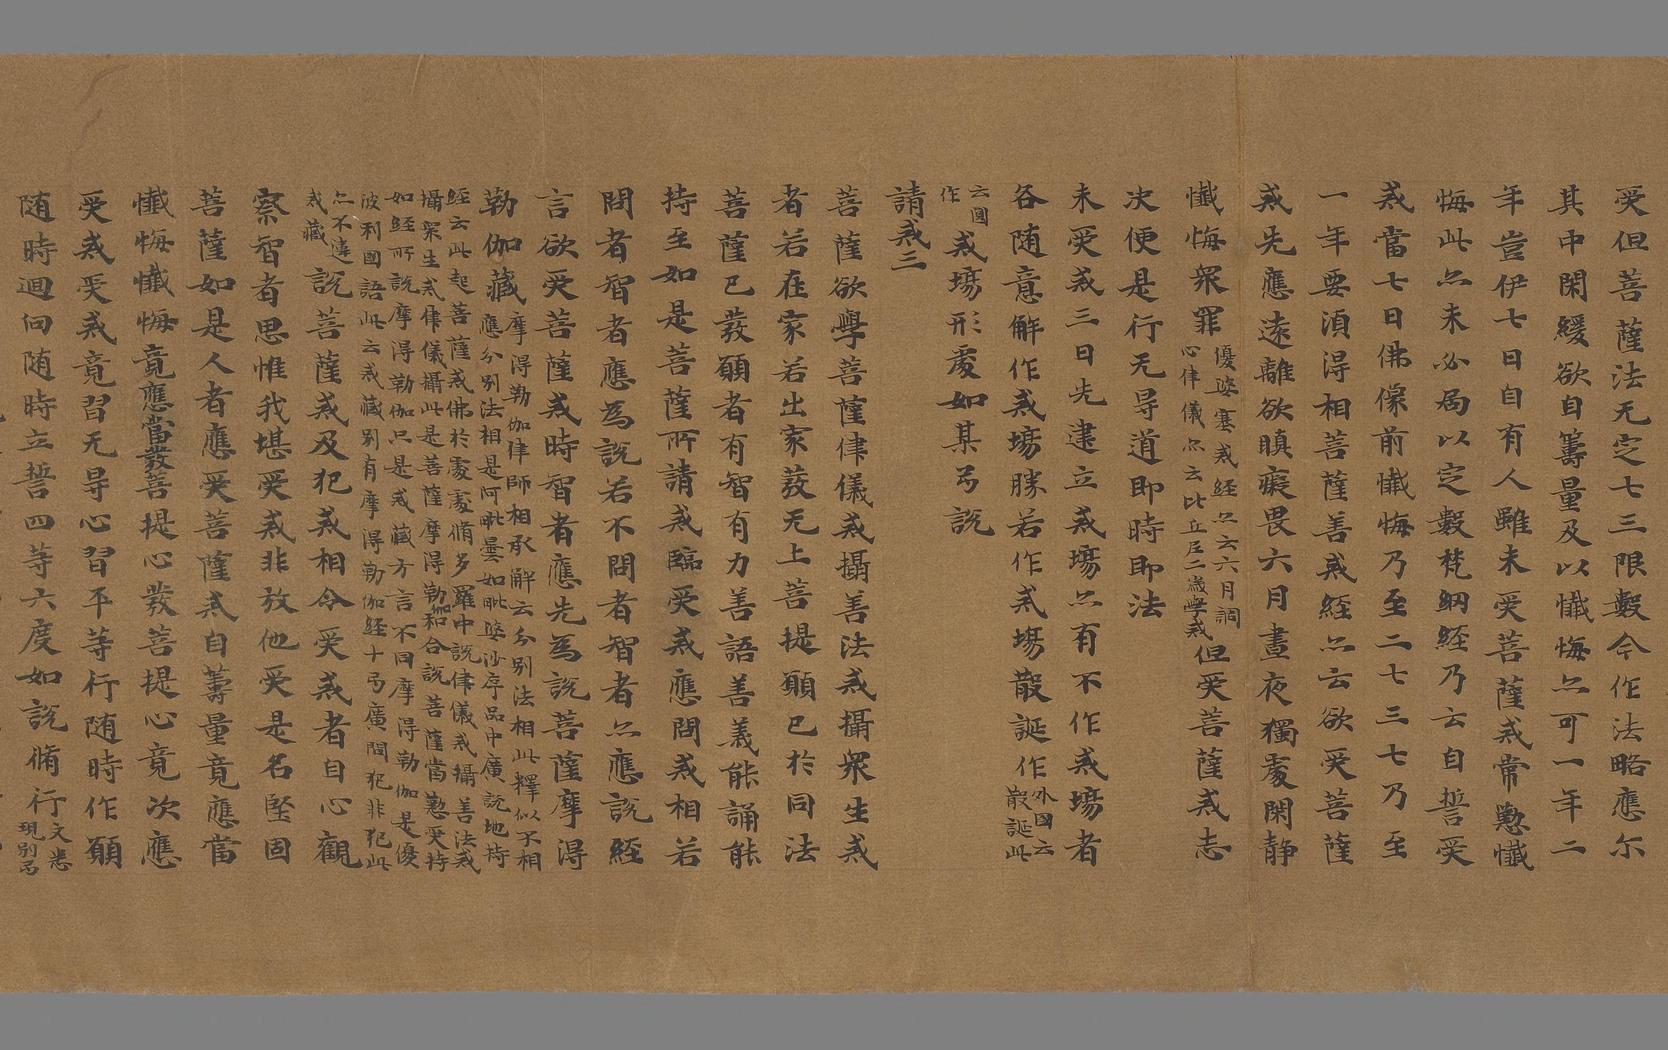 受但菩薩法无定七三限數今作法略應尔
其中閑緩欲自籌量及以懺悔亦可一年二
年豈伊七日自有人雖未受菩薩戒常懃懺
悔此亦未必局以定數梵網經乃云自誓受
戒當七日佛像前懺悔乃至二七三七乃至
一年要湏得相菩薩善戒經亦云欲受菩薩
戒先應遠離欲瞋癡畏六月晝夜獨處閑静
懺悔衆罪優婆塞戒經亦云六月調心律儀亦云比丘尼二歲學戒但受菩薩戒志
决便是行无㝵道即時即法
未受戒三日先建立戒場亦有不作戒場者
各随意解作戒場勝若作戒場散誕作外國云散誕此
云圓作戒場形處如某弓説
請戒三
菩薩欲學菩薩律儀戒攝善法戒攝衆生戒
者若在家若出家發无上菩提願已於同法
菩薩已發願者有智有力善語善義能誦能
持至如是菩薩所請戒臨受戒應問戒相若
問者智者應為説若不問者智者亦應説經
言欲受菩薩戒時智者應先為説菩薩摩得
勒伽藏摩得勒伽律師相承解云分別法相此釋似不相應分別法相是阿毗曇如毗婆沙序品中廣説地持
經云此起菩薩戒佛於處處脩多羅中説律儀戒攝善法戒攝衆生戒律儀攝此是菩薩摩得勒伽和合説菩薩當懃受持
如經所説摩得勒伽只是戒藏方言不同摩得勒伽是優波利國語此云戒藏別有摩得勒伽經十弓廣問犯非犯此
亦不違戒藏説菩薩戒及犯戒相令受戒者自心觀
察智者思惟我堪受戒非放他受是名堅固
菩薩如是人者應受菩薩戒自籌量竟應當
懺悔懺悔竟應當發菩提心發菩提心竟次應
受戒受戒竟習无㝵心習平等行随時作願
随時迴向随時立誓四等六度如説脩行文悉現別弓